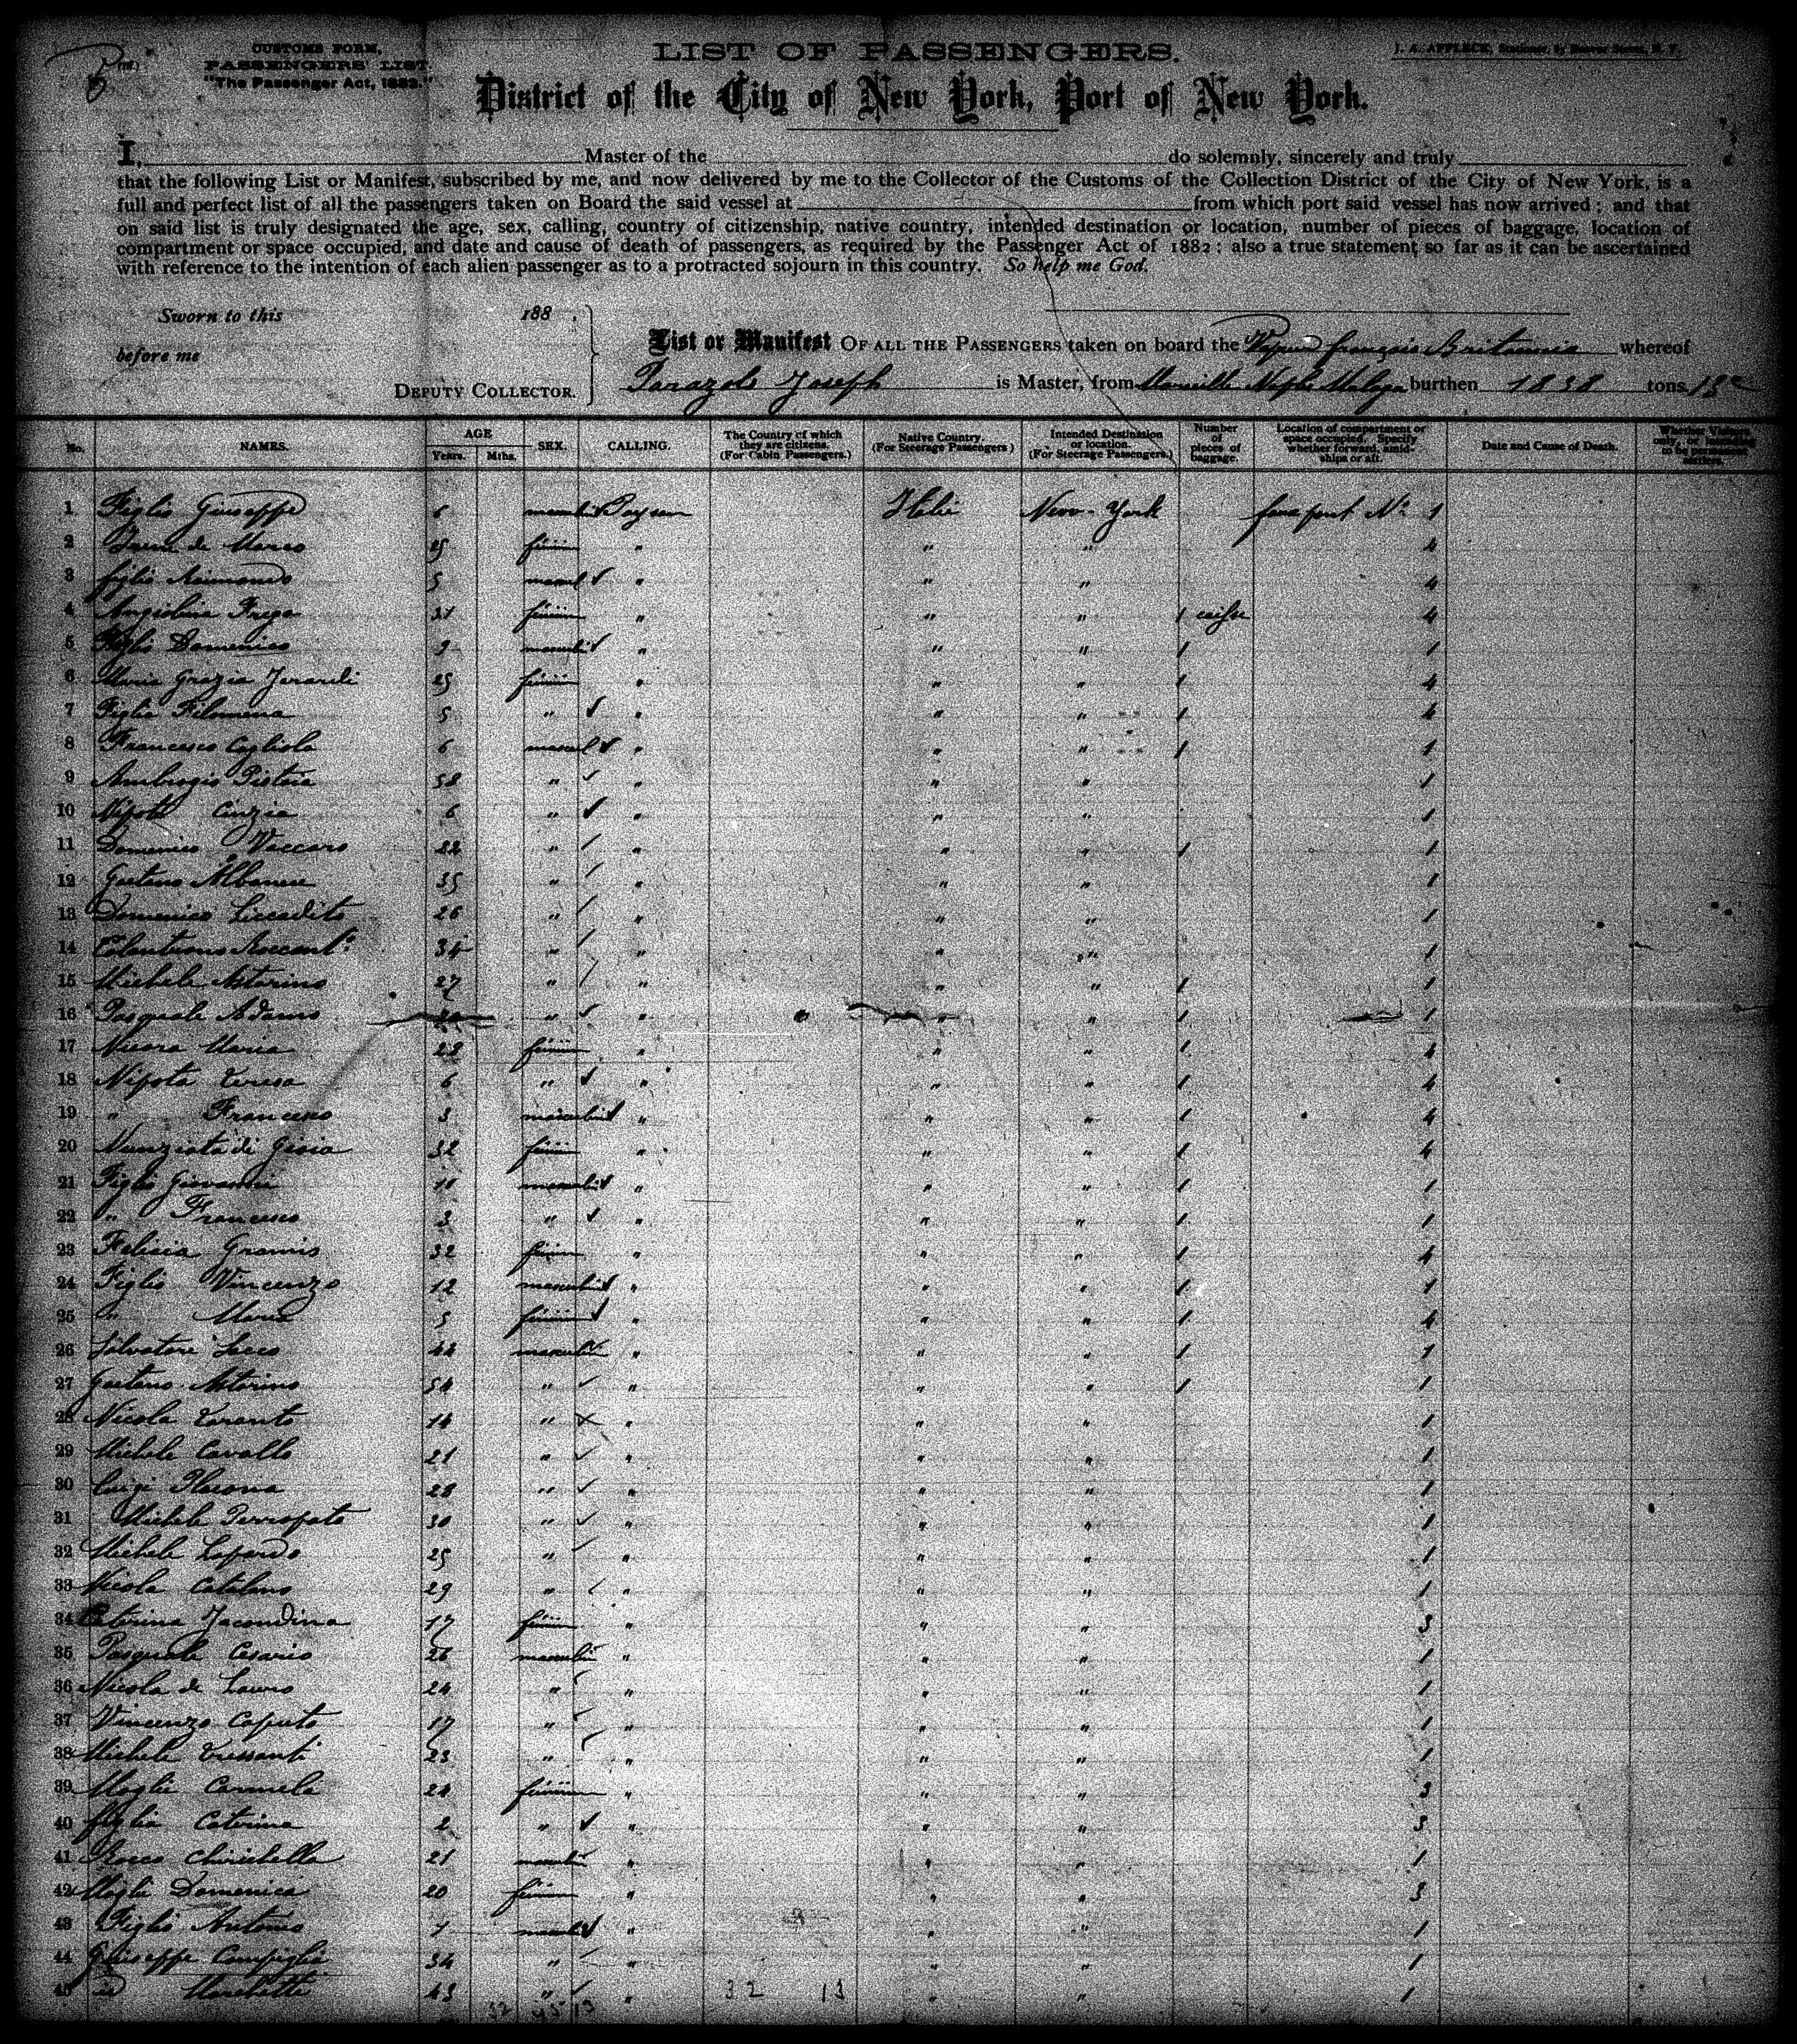 CUSTOMS FORM.
PASSENGERS' LIST.
"The Passenger Act, 1882."
LIST OF PASSENGERS.
J. A. AFFLECK, Stationer, Beaver Street, N. Y.
District of the City of New York, Port of New York.
I, Master of the do solemnly, sincerely and truly
that the following List or Manifest, subscribed by me, and now delivered by me to the Collector of the Customs of the Collection District of the City of New York, is a
full and perfect list of all the passengers taken on Board the said vessel at from which port said vessel has now arrived; and that
on said list is truly designated the age, sex, calling, country of citizenship, native country, intended destination or location, number of pieces of baggage, location of
compartment or space occupied, and date and cause of death of passengers, as required by the Passenger Act of 1882: also a true statement so far as it can be ascertained
with reference to the intention of each alien passenger as to a protracted sojourn in this country. So help me God.
Sworn to this 188 .
before me
DEPUTY COLLECTOR.
List or Manifest OF ALL THE PASSENGERS taken on board the Vapeur français Britannia whereof
Joseph is Master, from Marseille Naples Malaga burthen 1838 tons
No. NAMES. AGE Years. Mths. SEX. CALLING. The Country of which they are citizens. (For Cabin Passengers.) Native Country. (For Steerage Passengers) Intended Destination or location. (For Steerage Passengers.) Number of pieces of baggage. Location of compartment or space occupied. Specify whether forward, amidships or aft. Date and Cause of Death. Whether Visitors only, or intending to be permanent settlers.
1 Figlio Giuseppe 6 masculin Paysan Italie New-York faux pont No 1
2 de Marco 25 fémin " " " 4
3 figlio Raimondo 5 mascul " " " 4
4 Angiolina Frega 31 fémin " " " 1 caisse 4
5 Figlio Domenico 9 masculin " " " 1 1
6 Maria Grazia Jerardi 25 fémin " " " 1 4
7 Figlia Filomena 5 " " " " 1 4
8 Francesco Cagliola 6 mascul " " " 1 1
9 Ambrogio Pistoia 38 " " " " 1
10 Nipote Cinzia 6 " " " " 1
11 Domenico Vaccaro 22 " " " " 1 1
12 Gaetano Albanese 35 " " " " 1
13 Domenico Liccadito 26 " " " " 1
14 34 " " " " 1
15 Michele Astorino 27 " " " " 1 1
16 Pasquale Adamo " " " " 1 1
17 Maria 28 fémin " " " 1 4
18 Nipota Teresa 6 " " " " 1 4
19 " Francesco 3 masculin " " " 1 4
20 Nunziata di Gioia 32 fémin " " " 1 4
21 Figlio Giovanni 11 masculin " " " 1 1
22 " Francesco 3 " " " " 1 1
23 Felicia Gramis 32 fémin " " " 1 4
24 Figlio Vincenzo 12 masculin " " " 1 1
25 " Maria 5 fémin " " " 1 4
26 Salvatore Sacco 42 masculin " " " 1 1
27 Gaetano Astorino 54 " " " " 1 1
28 Nicola Taranto 14 " " " " 1
29 Michele Cavallo 21 " " " " 1
30 Luigi 28 " " " " 1
31 Michele Perropato 30 " " " " 1
32 Michele Lopardo 25 " " " " 1
33 Nicola Catalano 29 " " " " 1
34 Caterina Jacondina 17 fémin " " " 3
35 Pasquale Cesario 26 masculin " " " 1
36 Nicola de Lauro 24 " " " " 1
37 Vincenzo Caputo 17 " " " " 1
38 Michele Tressanti 23 " " " " 1
39 Moglie Carmela 24 fémin " " " 3
40 figlia Caterina 2 " " " " 3
41 Rocco Chirichella 21 masculin " " " 1
42 Moglie Domenica 20 fémin " " " 3
43 Figlio Antonio 1 masculin " " " 1
44 Giuseppe Campiglia 34 " " " " 1
45 id Marchetti 43 " " 32 13 " " 1
32 45 13